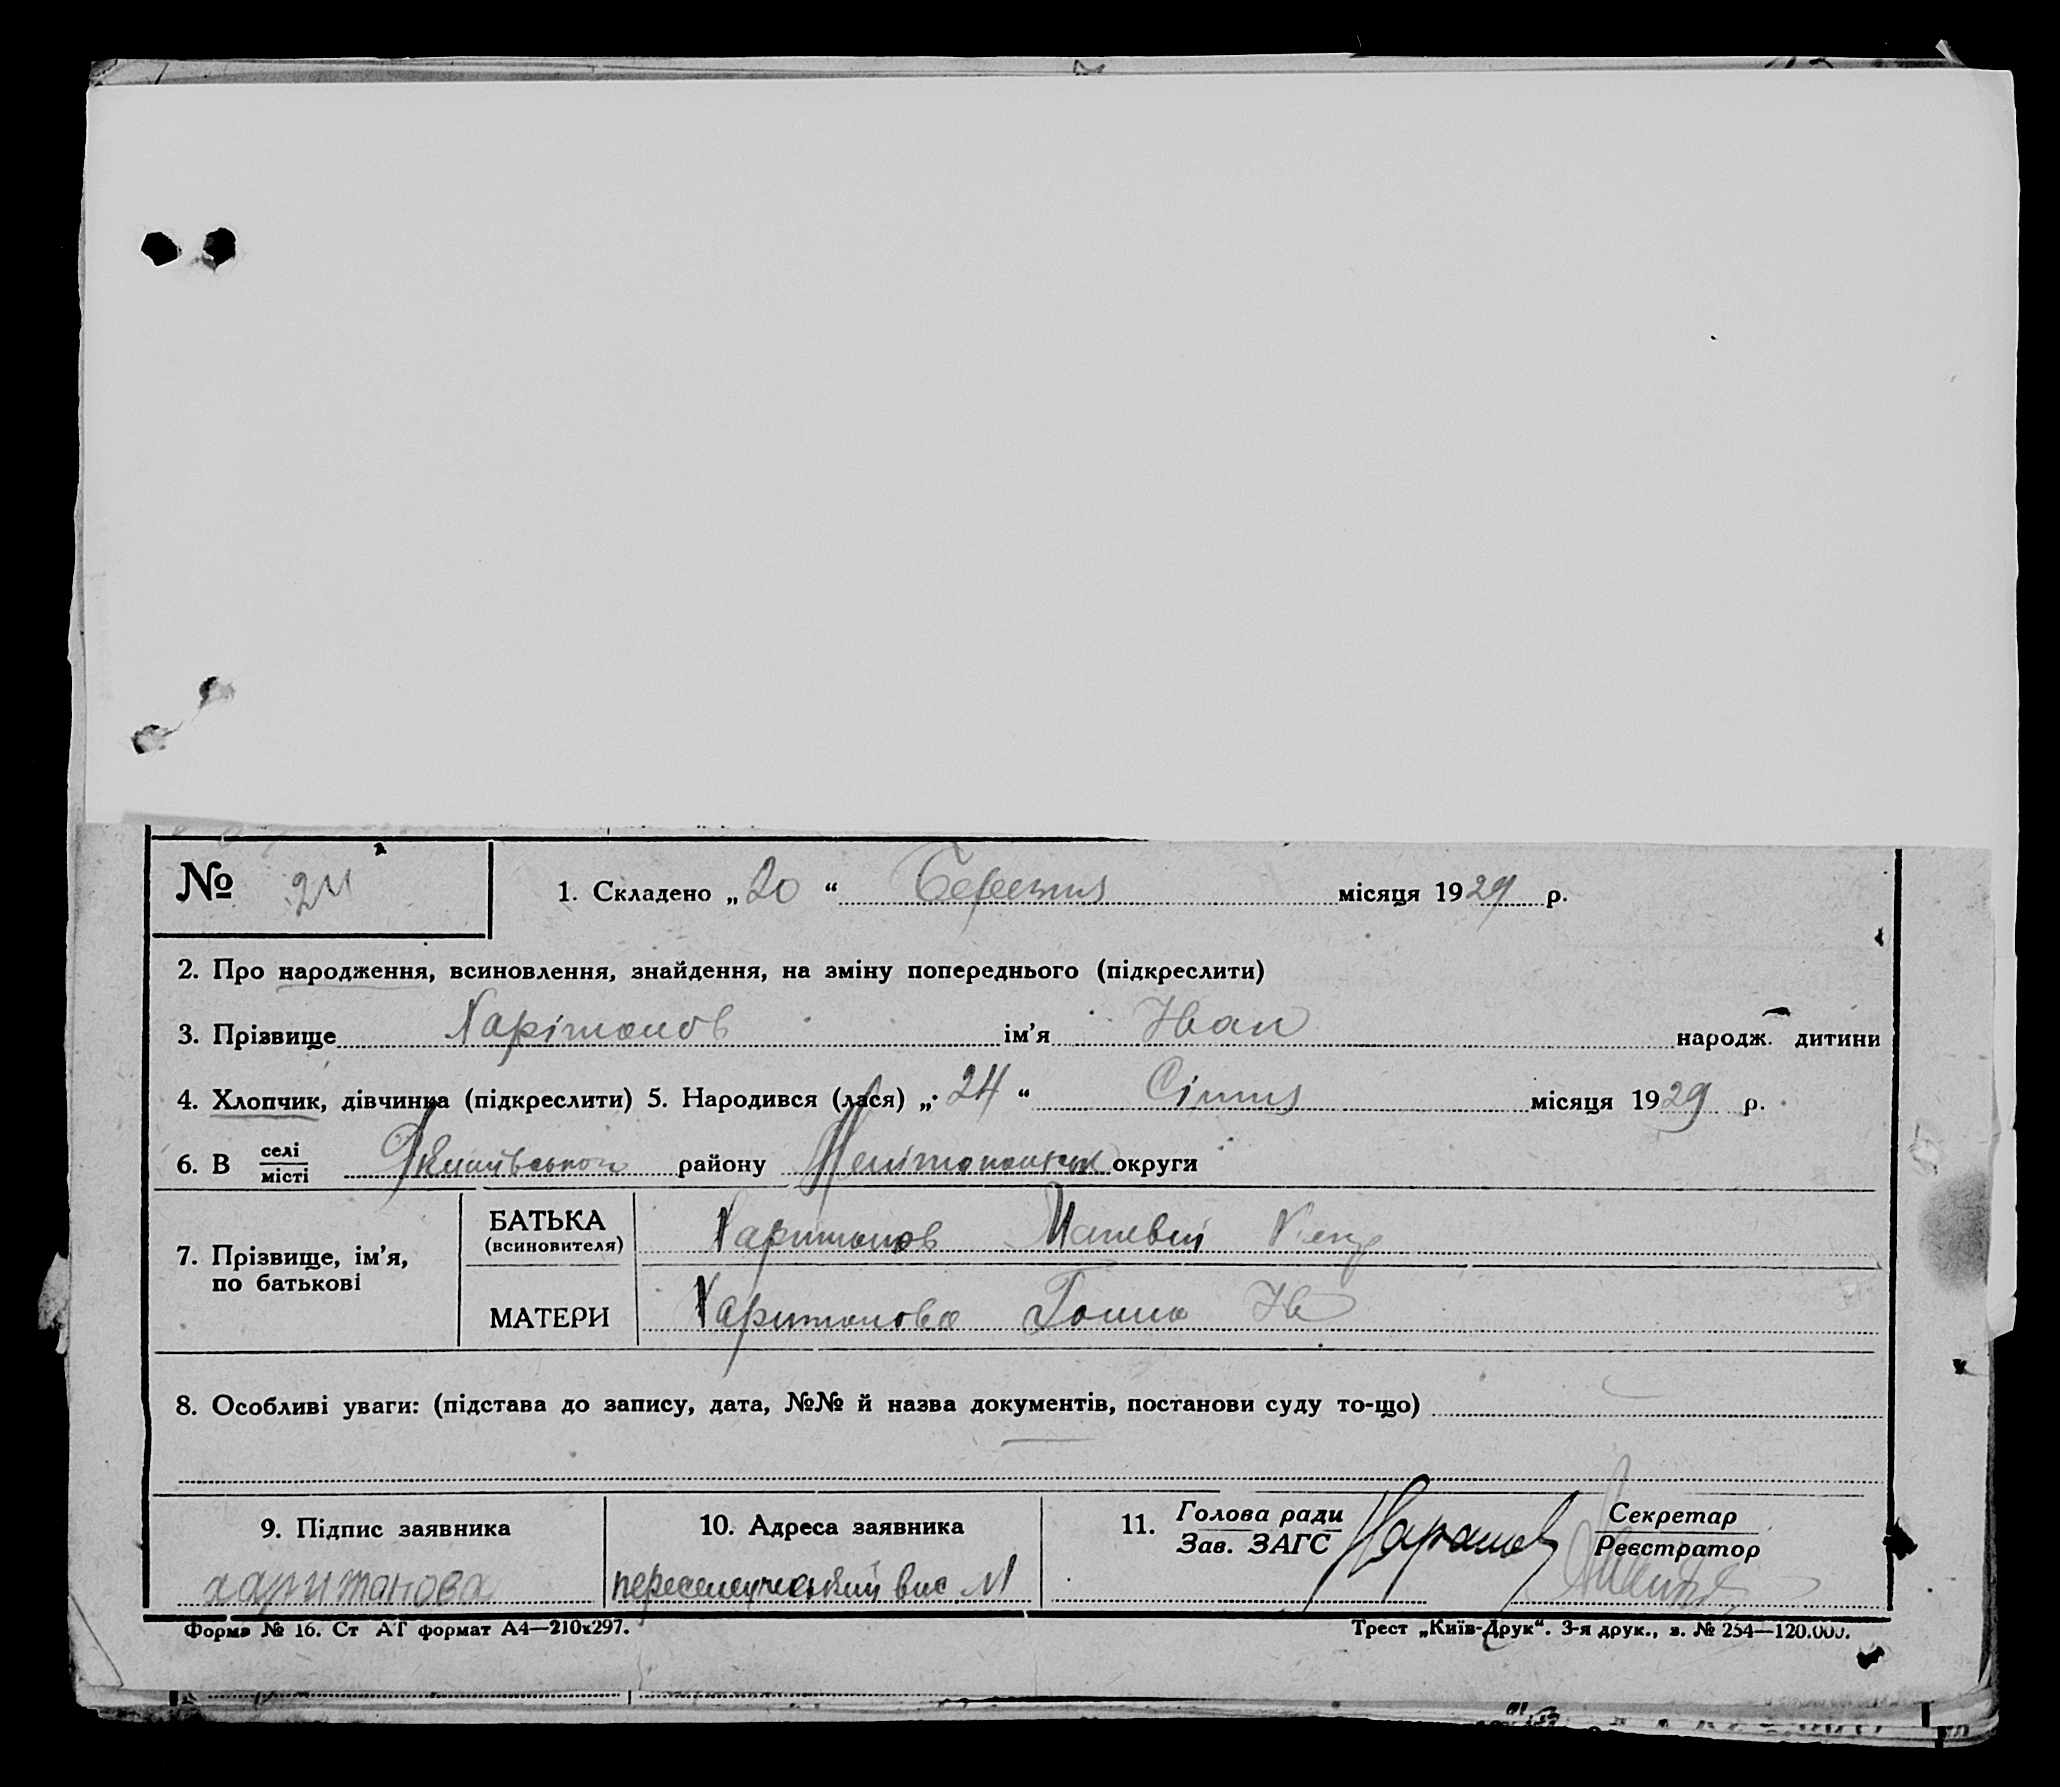 № 24 1. Складено „20“ Березня місяця 1929 р.
2. Про народження, всиновлення, знайдення, на зміну попереднього (підкреслити)
3. Прізвище Харітонов ім’я Іван народж. дитини
4. Хлопчик, дівчинка (підкреслити) 5. Народився (лася) „24“ Січня місяця 1929 р.
6. В селі місті району Мелітопольськ округи
7. Прізвище, ім’я, по батькові
БАТЬКА (всиновителя) Харитонов Матвей
МАТЕРИ Харитонова Ганна Ів
8. Особливі уваги: (підстава до запису, дата, №№ й назва документів, постанови суду то-що)
9. Підпис заявника 10. Адреса заявника 11. Голова ради Зав. ЗАГС Секретар Реєстратор
харитонова вис
Форма № 16. Ст АТ формат А4—210х297. Трест „Київ-Друк“. 3-я друк., з. № 254—120.000.